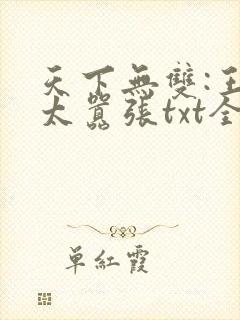 天下無雙:王
太囂張txt全
单紅霞